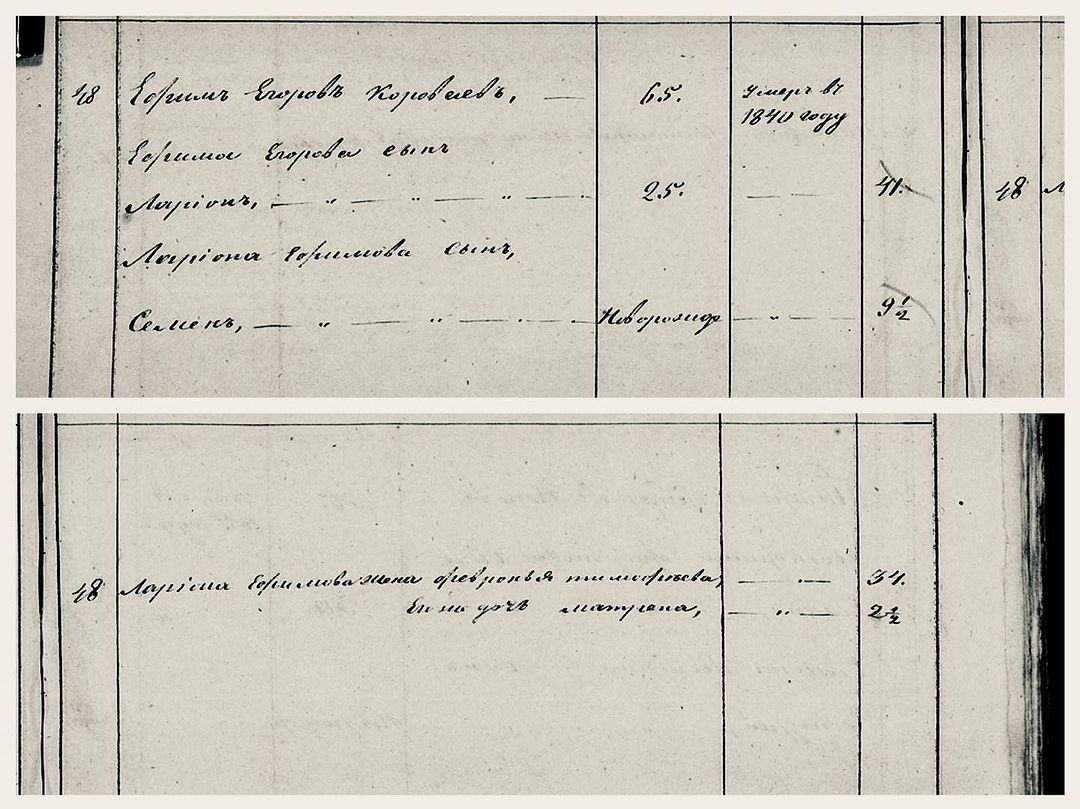 48 Ефимъ Егоровъ Короваевъ, — 65. Умеръ въ
1840 году
Ефима Егорова сынъ
Ларіонъ, — „ — „ — „ — 25. — — 41. 48
Ларіона Ефимова сынъ,
Семенъ, — „ — „ — . — Новорожд — „ — 9 1/2
48 Ларіона Ефимова жена Февронья Тимофѣева, — „ — 34.
Ея же дочь Матрена, — „ — 2 1/2